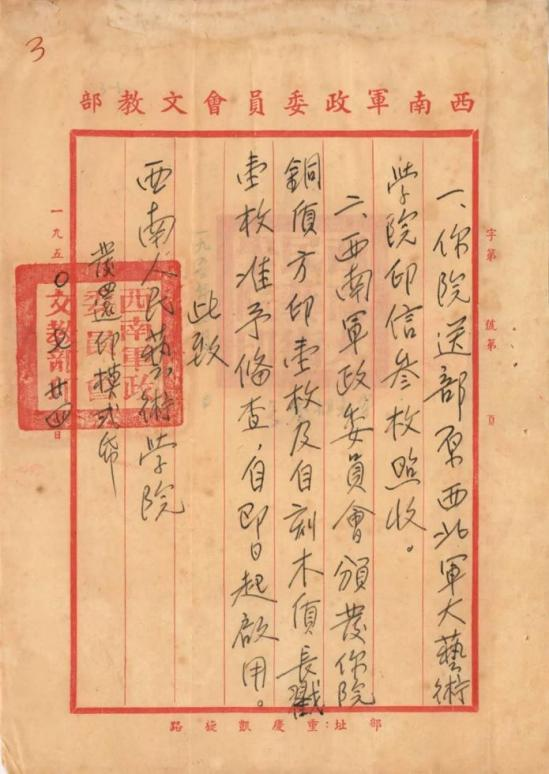 3
西南軍政委員會文教部
字第 號第 頁
一、你院送部原西北軍大藝術
學院印信叁枚照收。
二、西南軍政委員會頒發你院
銅質方印壹枚及自刻木質長戳
壹枚准予俻查，自即日起啟用。
此致
西南人民藝術學院
發還印模弍
一九五〇 廿四日
西南軍政
委員會
文教部
部址：重慶凱旋路